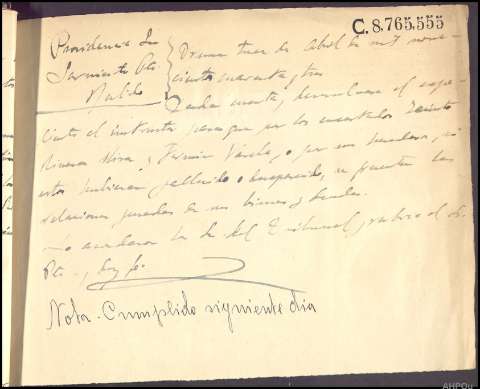 C.8.765.555
Providencia
Sarmiento Pte
Rubido
Orense tres de Abril de mil nove-
cientos cuarenta y tres
Dada cuenta, devuélvase el expe-
diente al instructor para que por los encartados
Rivera y Fermin Varela, o por sus herederos, si
estos hubieran fallecido o desaparecido, se presenten las
relaciones juradas de sus bienes y deudas.
Lo acordaron los Sres del Tribunal, rubrica el Sr.
Pte., doy fe.
Nota.- Cumplido siguiente dia
AHPOu